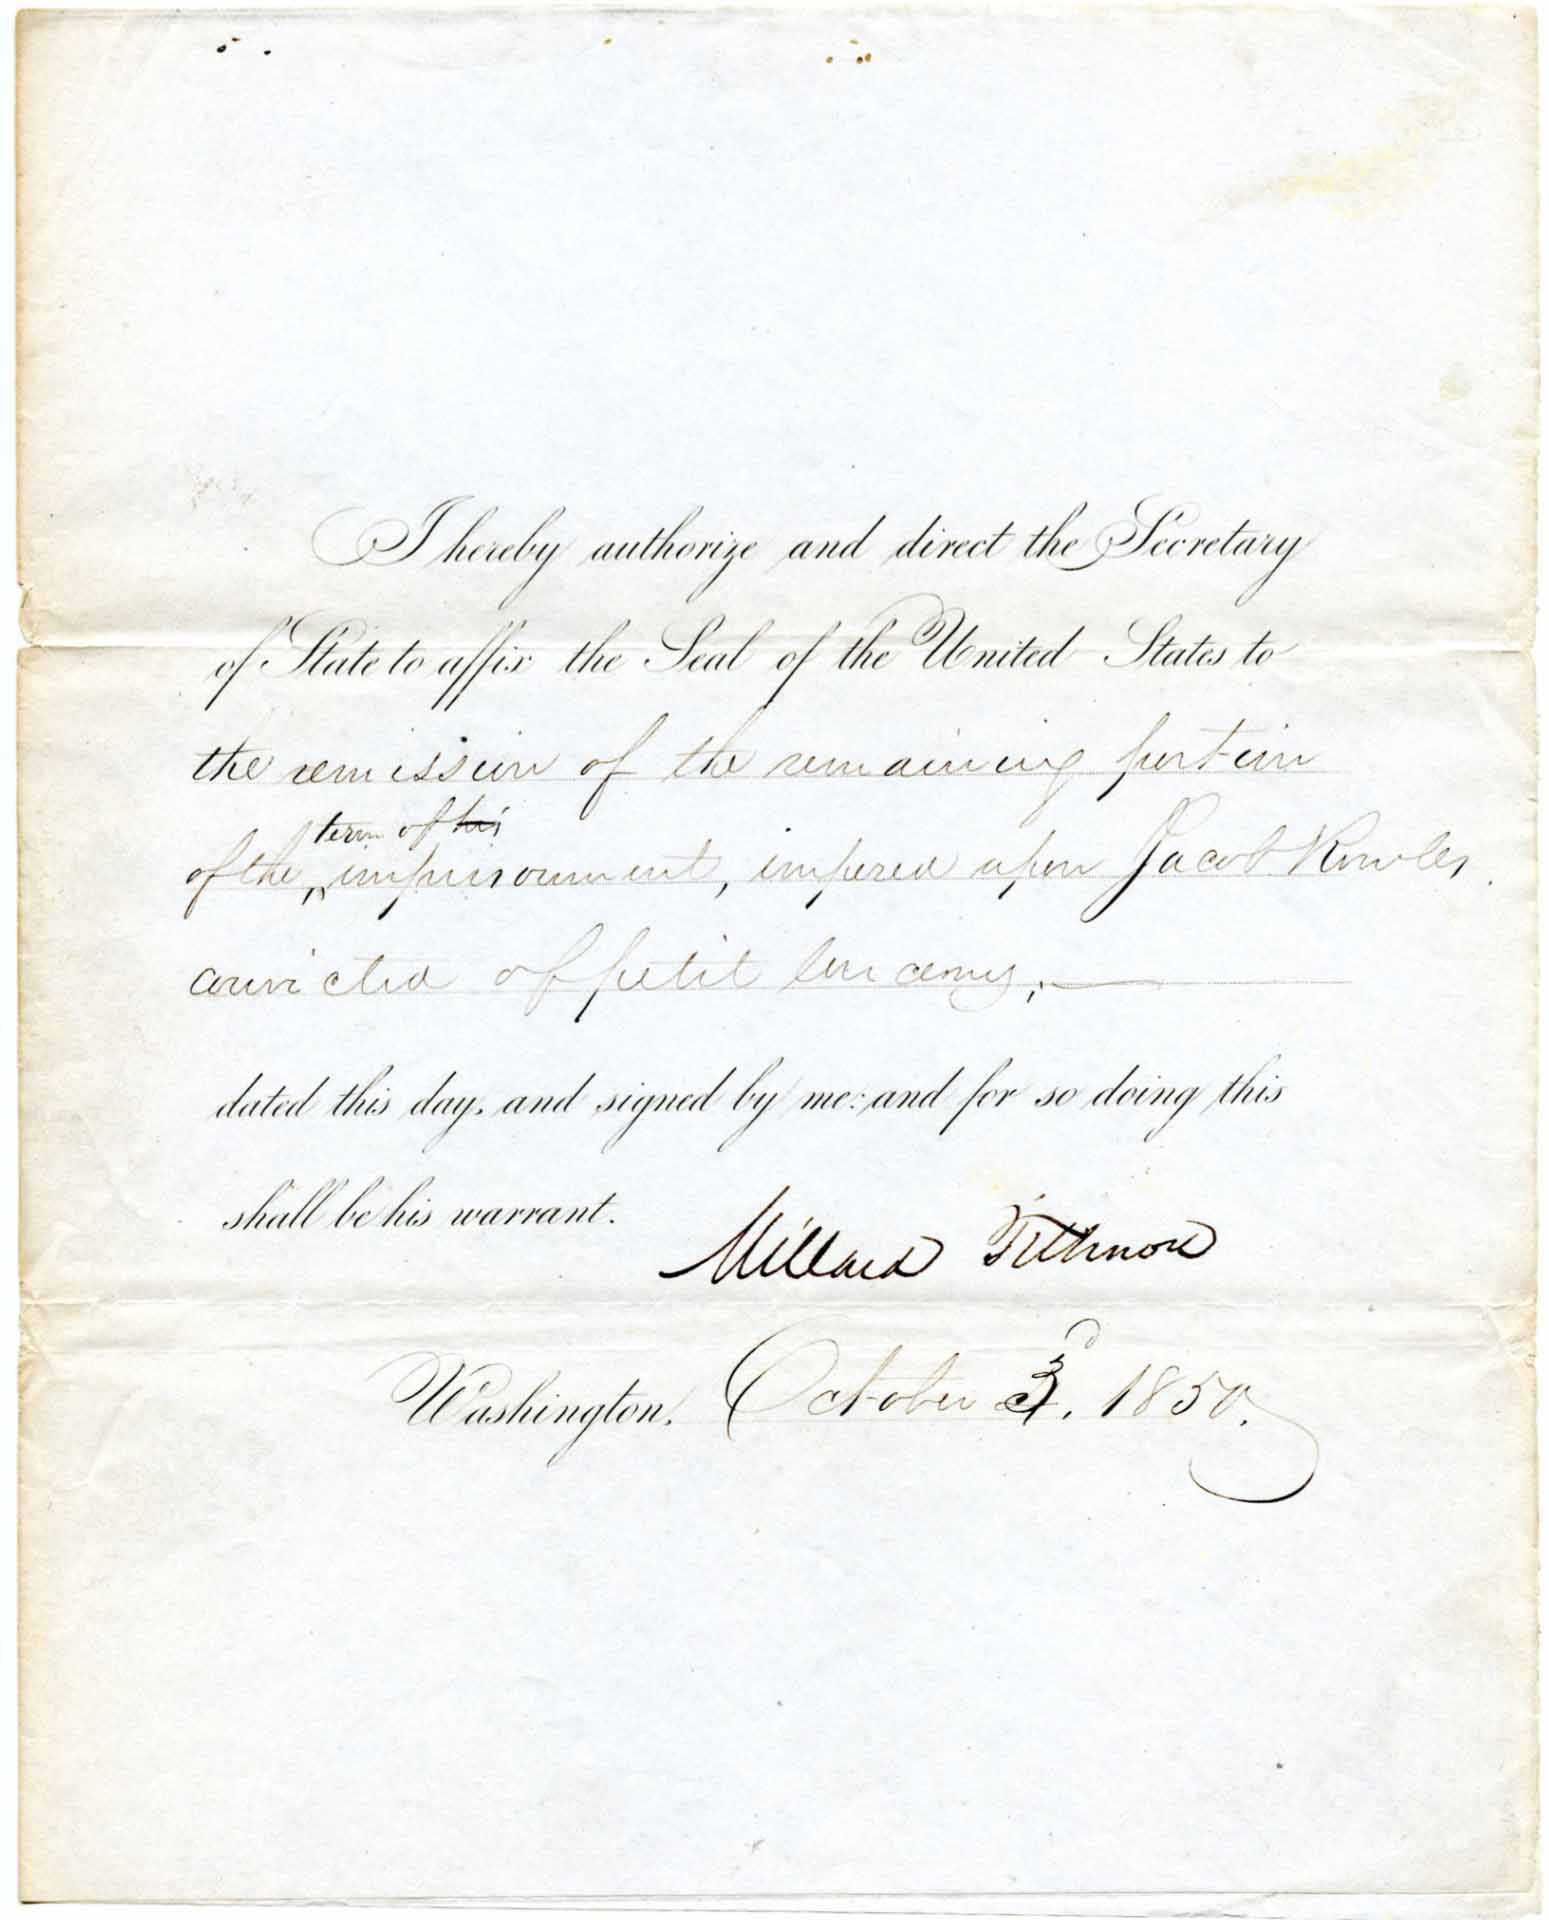 I hereby authorize and direct the Secretary
of State to affix the Seal of the United States to
the remission of the remaining portion
term of his
of the imprisonment, imposed upon Jacob Rowles,
convicted of petit larceny,
dated this day, and signed by me: and for so doing this
shall be his warrant.
Millard Fillmore
Washington, October 3d, 1850.